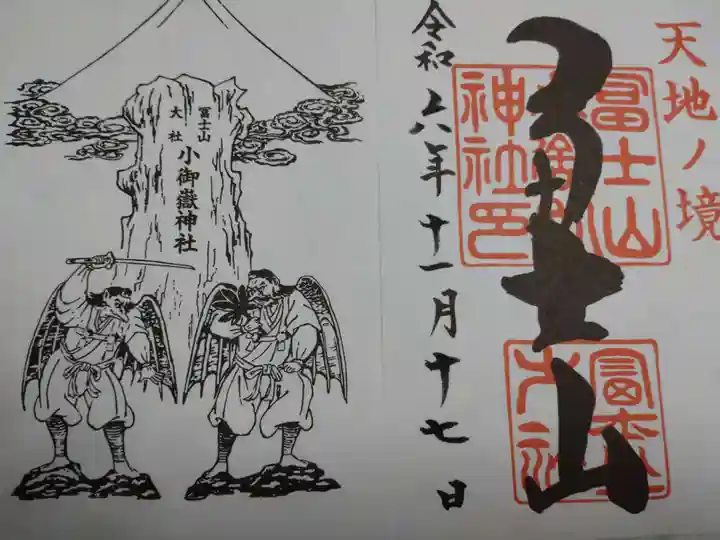 天地ノ境
冨士山
令和六年十一月十七日
冨士山
神社印
冨士山
大社
小御嶽神社